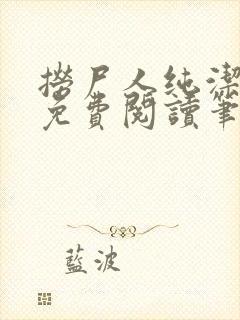 撈尸人純潔
免費閱讀筆
藍波